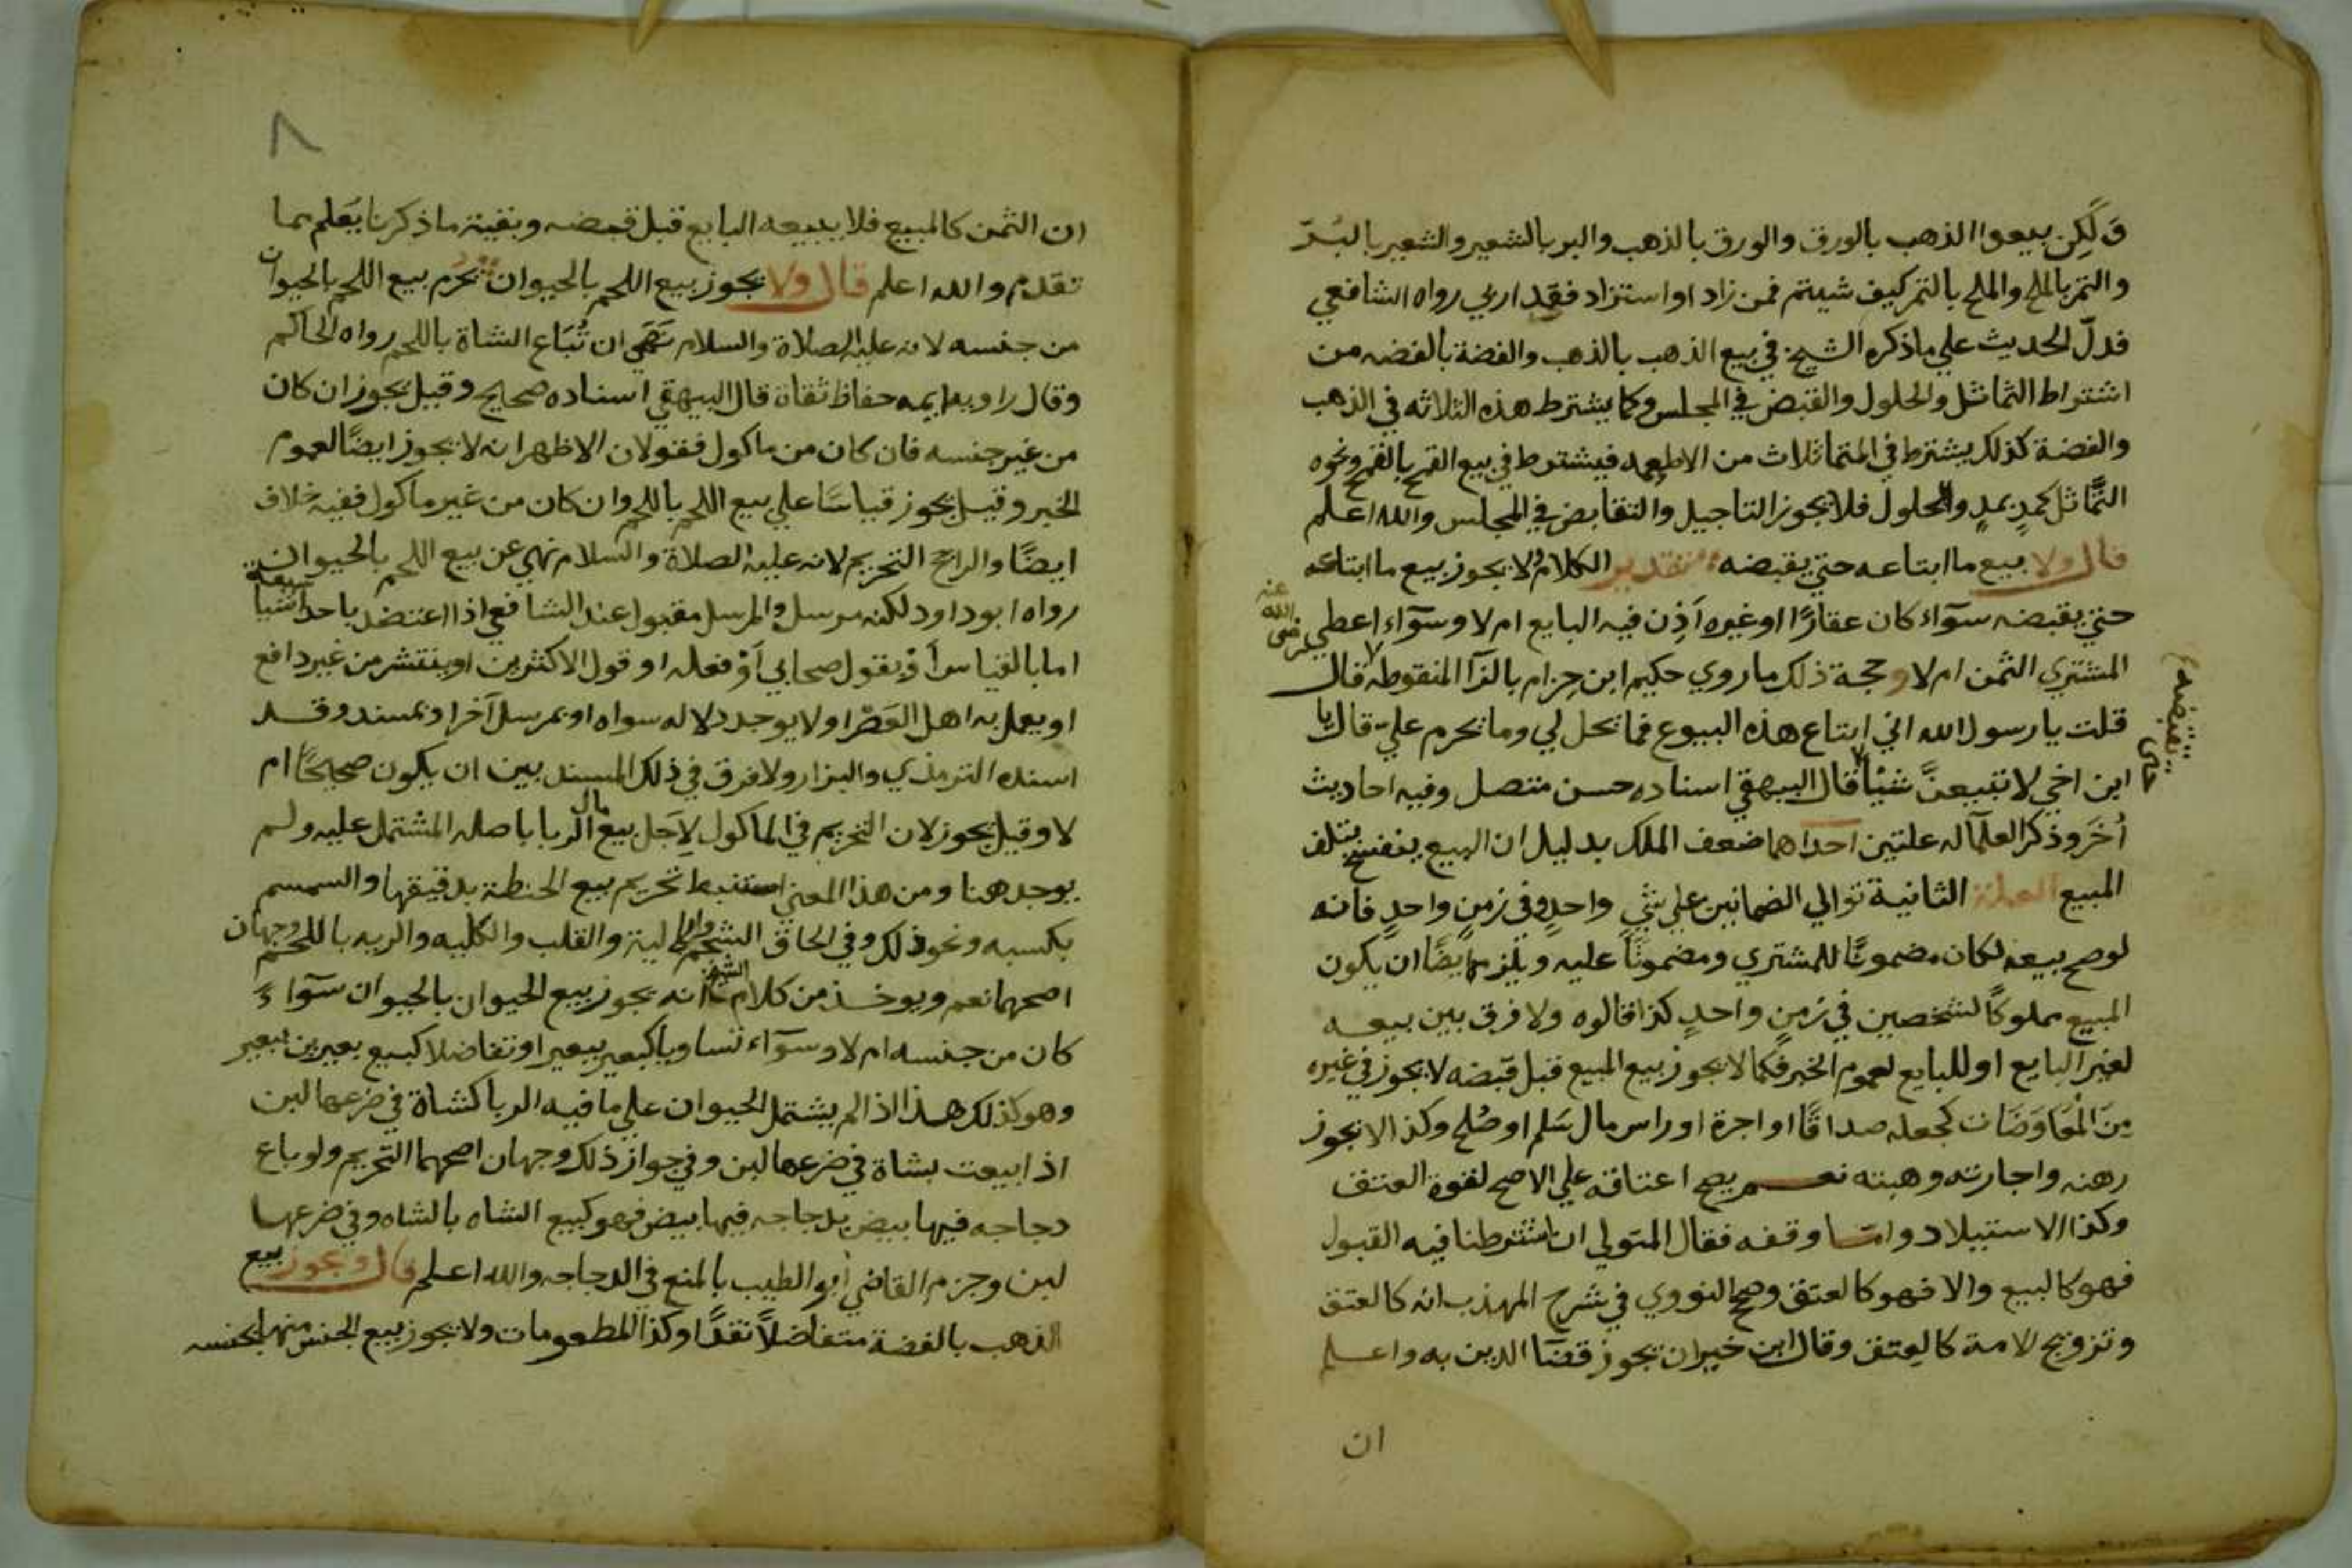 وَلَكِن بيعوا الذهب بالورق والورق بالذهب والبر بالشعير والشعير بالبُرّ
والتمر بالملح والملح بالتمر كيف شيتم فمن زاد او استزاد فقد اربي رواه الشافعي
فدلّ الحديث علي ما ذكره الشيخ في بيع الذهب بالذهب والفضة بالفضه من
اشتراط التماثل والحلول والقبض في المجلس وكما يشترط هذه الثلاثه في الذهب
والفضة كذلك يشترط في المتماثلاث من الاطعمه فيشترط في بيع القمح بالقمح ونحوه
التَّماثل كمدٍ بمدٍ والحلول فلا يجوز التاجيل والتقابض في المجلس والله اعلم
قال ولا بيع ما ابتاعه حتي يقبضه تقدير الكلام ولا يجوز بيع ما ابتاعه
حتي يقبضه سوآء كان عقارًا او غيره اَذِن فيه البايع ام لا وسوآء اعطي
المشتري الثمن ام لا وحجة ذلك ما روي حكيم ابن حِزام بالزآ المنقوطه رضى الله عنه قال
قلت يا رسول الله اني ابتاع هذه البيوع فما تحل لي وما يحرم عليّ قال يا
ابن اخي لا تبيعنَّ شيْأً حتى تقبضه قال البيهقي اسناده حسن متصل وفيه احاديث
اُخَر وذكر العلمآ له علتين احداهما ضعف الملك بدليل ان البيع ينفسخ بتلف
المبيع العلة الثانية توالي الضمانين علي شيٍ واحدٍ وفي زمنٍ واحدٍ فانه
لو صح بيعه لكان مضمونًا للمشتري ومضمونًا عليه ويلزم ايضًا ان يكون
المبيع مملوكًا لشخصين في زمنٍ واحدٍ كذا قالوه ولا فرق بين بيعه
لغير البايع او للبايع لعموم الخبر فكما لا يجوز بيع المبيع قبل قبضه لا يجوز في غيره
مِنَ المُعَاوَضَات كجعله صداقًا او اجرة او راس مال سَلم او صُلح وكذا لا يجوز
رهنه واجارته وهبته نعم يصح اعتاقه علي الاصح لقوة العتق
وكذا الاستيلاد وامّا وقفه فقال المتولي ان اشترطنا فيه القبول
فهو كالبيع والا فهو كالعتق وصحح النووي في شرح المهذب انه كالعتق
وتزويج الامة كالعتق وقال ابن خيران يجوز قضآ الدين به واعلم
ان
٨
ان الثمن كالمبيع فلا يبيعه البايع قبل قبضه وبقية ما ذكرنا يُعلم مما
تقدم والله اعلم قال ولا يجوز بيع اللحم بالحيوان يحرم بيع اللحم بالحيوان
من جنسه لانه عليه الصلاة والسلام نَهَى ان تُبَاع الشاة باللحم رواه الحاكم
وقال راويه ايمه حفاظ ثقاة قال البيهقي اسناده صحيح وقيل يجوز ان كان
من غير جنسه فان كان من ماكول فقولان الاظهر انه لا يجوز ايضًا لعموم
الخبر وقيل يجوز قياسًا علي بيع اللحم باللحم وان كان من غير ماكول ففيه خلاف
ايضًا والراجح التحريم لانه عليه الصلاة والسلام نهي عن بيع اللحم بالحيوان
رواه ابو داود لكنه مرسل والمرسل مقبول عند الشافعي اذا اعتضد باحد اشيا سبعة
اما بالقياس اَوْ بقول صحابي اَوْ فعله او قول الاكثرين او ينتشر من غير دافع
او يعمل به اهل العَصْر او لا يوجد دلاله سواه او بمرسل آخر او بمسند وقد
اسنده الترمذي والبزار ولا فرق في ذلك المسند بين ان يكون صحيحًا ام
لا وقيل يجوز لان التحريم في الماكول لاَجل بيع مال الربا باصله المشتمل عليه ولم
يوجد هنا ومن هذا المعني استنبط تحريم بيع الحنطة بدقيقها والسمسم
بكسبه ونحو ذلك وفي الحاق الشحم والالية والقلب والكليه والريه باللحم وجهان
اصحهما نعم ويوخذ من كلام الشيخ انه يجوز بيع الحيوان بالحيوان سوآءً
كان من جنسه ام لا وسوآء تساويا كبعير ببعير او تفاضلا كبيع بعيرين ببعير
وهو كذلك هذا اذا لم يشتمل الحيوان علي ما فيه الربا كشاة في ضرعها لبن
اذا بيعت بشاة في ضرعها لبن وفي جواز ذلك وجهان اصحهما التحريم ولو باع
دجاجه فيها بيض بدجاجه فيها بيض فهو كبيع الشاه بالشاه وفي ضرعها
لبن وجزم القاضي أبو الطيب بالمنع في الدجاجه والله اعلم قال ويجوز بيع
الذهب بالفضة متفاضلاً نقدًا وكذا المطعومات ولا يجوز بيع الجنس منها بجنسه